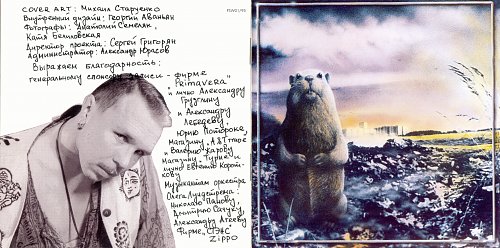 COVER ART: Михаил Старученко
Внутренний дизайн: Георгий Авоньян
Фотографы: Анатолий Семеляк,
Катя Белиловская
Директор проекта: Сергей Григорян
Администратор: Александр Юрасов
Выражаем благодарность:
генеральному спонсору записи - фирме
"Primavera"
и лично Александру
Грузгину
и Александру
Лебедеву,
Юрию Потороке,
магазину
и Валерию Карову
Магазину "Турне" и
лично Евгению Корот-
кову
Музыкантам оркестра
Олега Лундстрема:
Николаю Панову,
Дмитрию Сачуку,
Александру Агееву
Фирме
ZIPPO